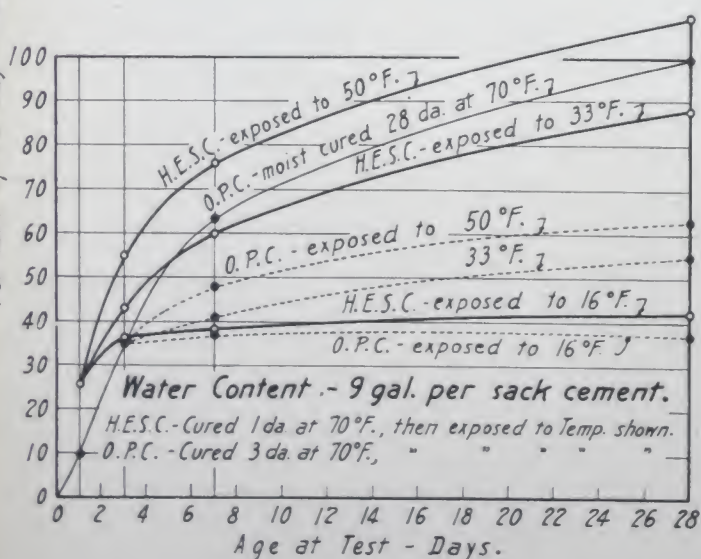 100
90
80
70
60
50
40
30
20
10
0
H.E.S.C.-exposed to 50°F.
O.P.C.-moist cured 28 da. at 70°F.
H.E.S.C.-exposed to 33°F.
O.P.C.-exposed to 50°F.
33°F.
H.E.S.C.-exposed to 16°F.
O.P.C.-exposed to 16°F.
Water Content.-9 gal. per sack cement.
H.E.S.C.-Cured 1 da. at 70°F., then exposed to Temp. shown.
O.P.C.-Cured 3 da. at 70°F., " " " "
0 2 4 6 8 10 12 14 16 18 20 22 24 26 28
Age at Test - Days.